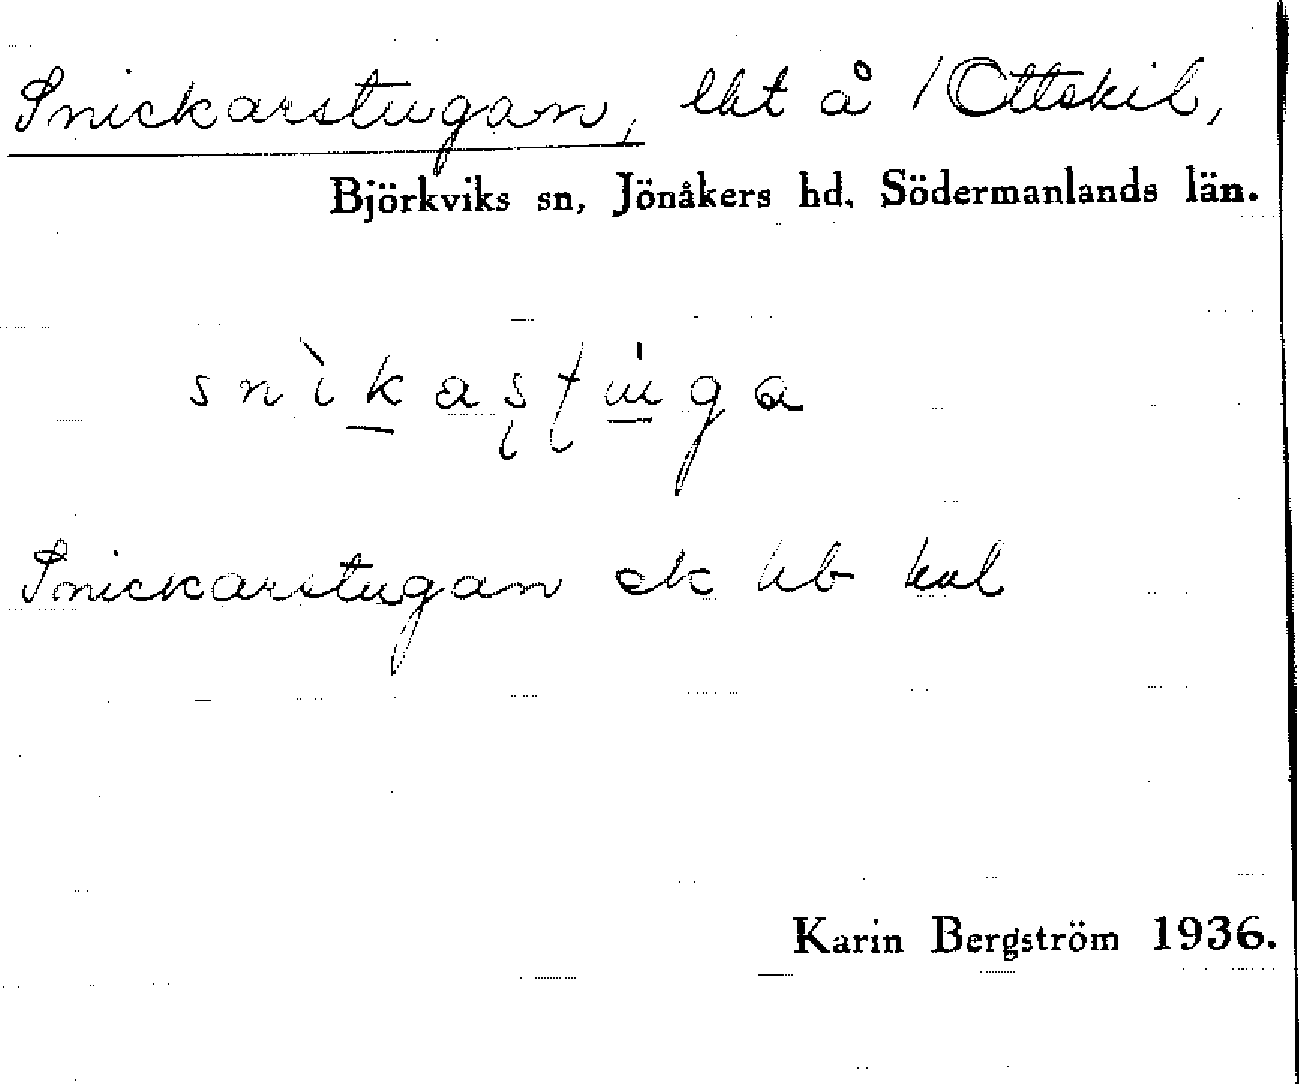 Snickarstugan, lht å /Ottekil,
Björkviks sn, Jönåkers hd. Södermanlands län.
snìkasstuga
Snickarstugan ek hb kal
Karin Bergström 1936.